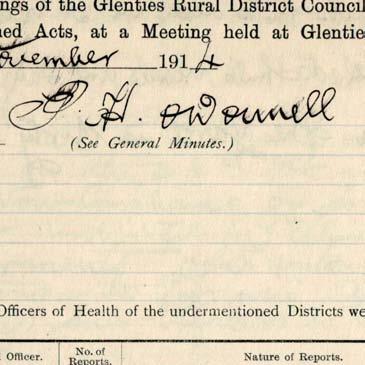 ngs of the Glenties Rural District Council
ned Acts, at a Meeting held at Glenties
ovember 1914
P. H. O'Donnell
(See General Minutes.)
Officers of Health of the undermentioned Districts we
l Officer. No. of Reports. Nature of Reports.